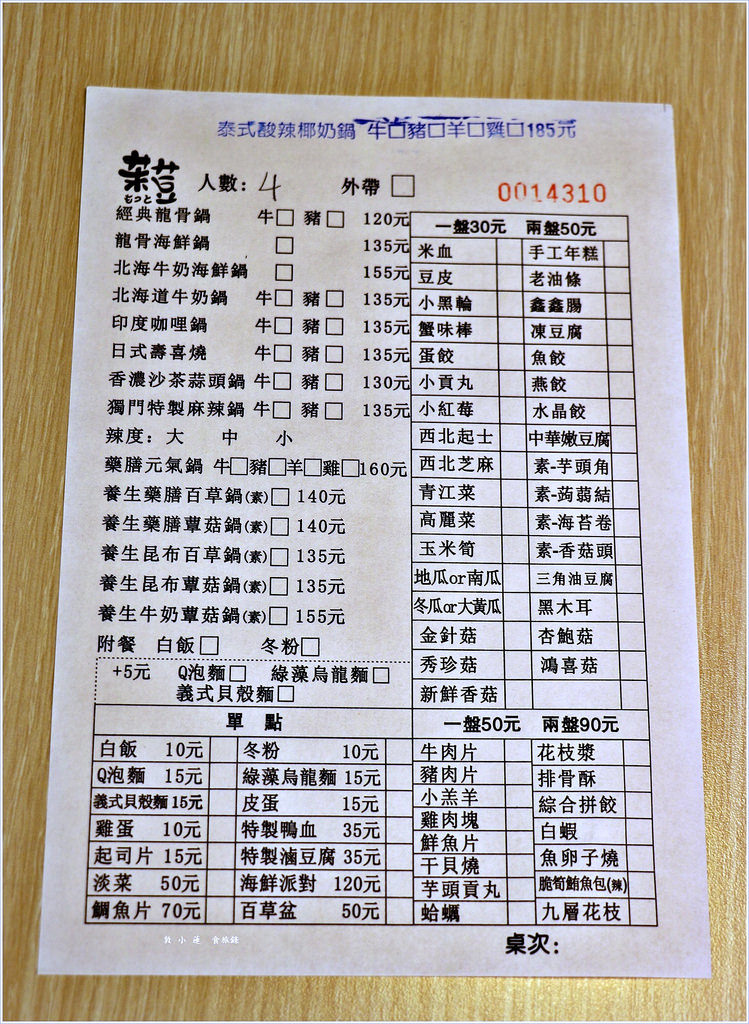 泰式酸辣椰奶鍋 牛□豬□羊□雞□185元
菜豆 もっと 人數: 4 外帶 □ 0014310
經典龍骨鍋 牛□ 豬□ 120元
龍骨海鮮鍋 □ 135元
北海牛奶海鮮鍋 □ 155元
北海道牛奶鍋 牛□ 豬□ 135元
印度咖哩鍋 牛□ 豬□ 135元
日式壽喜燒 牛□ 豬□ 135元
香濃沙茶蒜頭鍋 牛□ 豬□ 130元
獨門特製麻辣鍋 牛□ 豬□ 135元
辣度: 大 中 小
藥膳元氣鍋 牛□豬□羊□雞□160元
養生藥膳百草鍋(素)□ 140元
養生藥膳蕈菇鍋(素)□ 140元
養生昆布百草鍋(素)□ 135元
養生昆布蕈菇鍋(素)□ 135元
養生牛奶蕈菇鍋(素)□ 155元
附餐 白飯□ 冬粉□
+5元 Q泡麵□ 綠藻烏龍麵□
義式貝殼麵□
一盤30元 兩盤50元
米血 手工年糕
豆皮 老油條
小黑輪 鑫鑫腸
蟹味棒 凍豆腐
蛋餃 魚餃
小貢丸 燕餃
小紅莓 水晶餃
西北起士 中華嫩豆腐
西北芝麻 素-芋頭角
青江菜 素-蒟蒻結
高麗菜 素-海苔卷
玉米筍 素-香菇頭
地瓜or南瓜 三角油豆腐
冬瓜or大黃瓜 黑木耳
金針菇 杏鮑菇
秀珍菇 鴻喜菇
新鮮香菇
單 點
白飯 10元 冬粉 10元
Q泡麵 15元 綠藻烏龍麵 15元
義式貝殼麵 15元 皮蛋 15元
雞蛋 10元 特製鴨血 35元
起司片 15元 特製滷豆腐 35元
淡菜 50元 海鮮派對 120元
鯛魚片 70元 百草盆 50元
一盤50元 兩盤90元
牛肉片 花枝漿
豬肉片 排骨酥
小羔羊 綜合拼餃
雞肉塊 白蝦
鮮魚片 魚卵子燒
干貝燒 脆筍鮪魚包(辣)
芋頭貢丸 九層花枝
蛤蠣
桌次:
敦 小 蓮 食旅錄